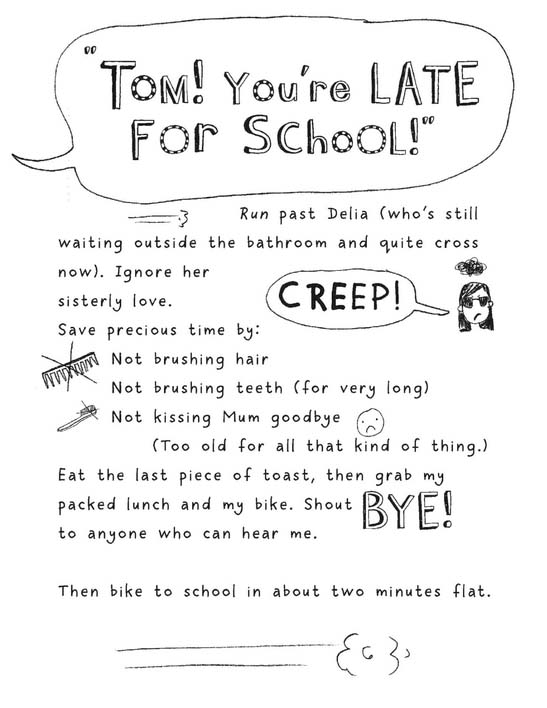 "TOM! You're LATE
FOR SCHOOL!"
Run past Delia (who's still
waiting outside the bathroom and quite cross
now). Ignore her
sisterly love.
CREEP!
Save precious time by:
Not brushing hair
Not brushing teeth (for very long)
Not kissing Mum goodbye
(Too old for all that kind of thing.)
Eat the last piece of toast, then grab my
packed lunch and my bike. Shout BYE!
to anyone who can hear me.
Then bike to school in about two minutes flat.